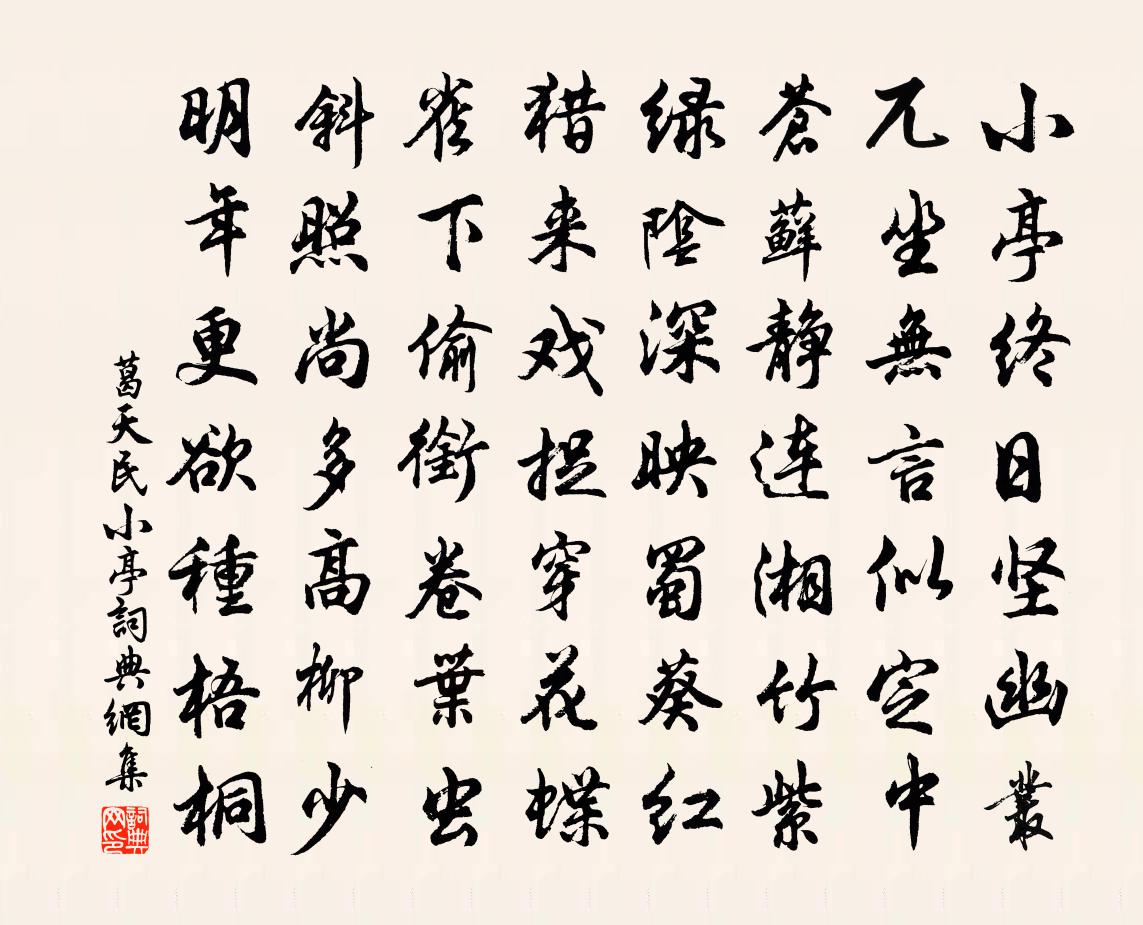 小亭终日坚幽叢
兀坐無言似定中
蒼蘚静连湘竹紫
绿陰深映蜀葵红
猎来戏捉穿花蝶
雀下偷銜卷葉虫
斜照尚多高柳少
明年更欲種梧桐
葛天民小亭詞典網集
詞典网印